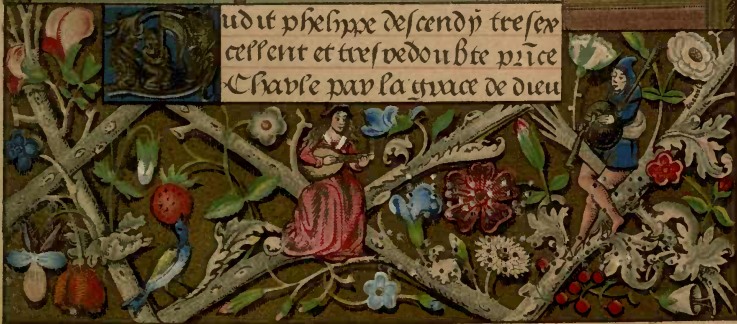 Dudit phelippe descendy tresex
cellent et tresredoubte prĩce
Charle par la grace de dieu